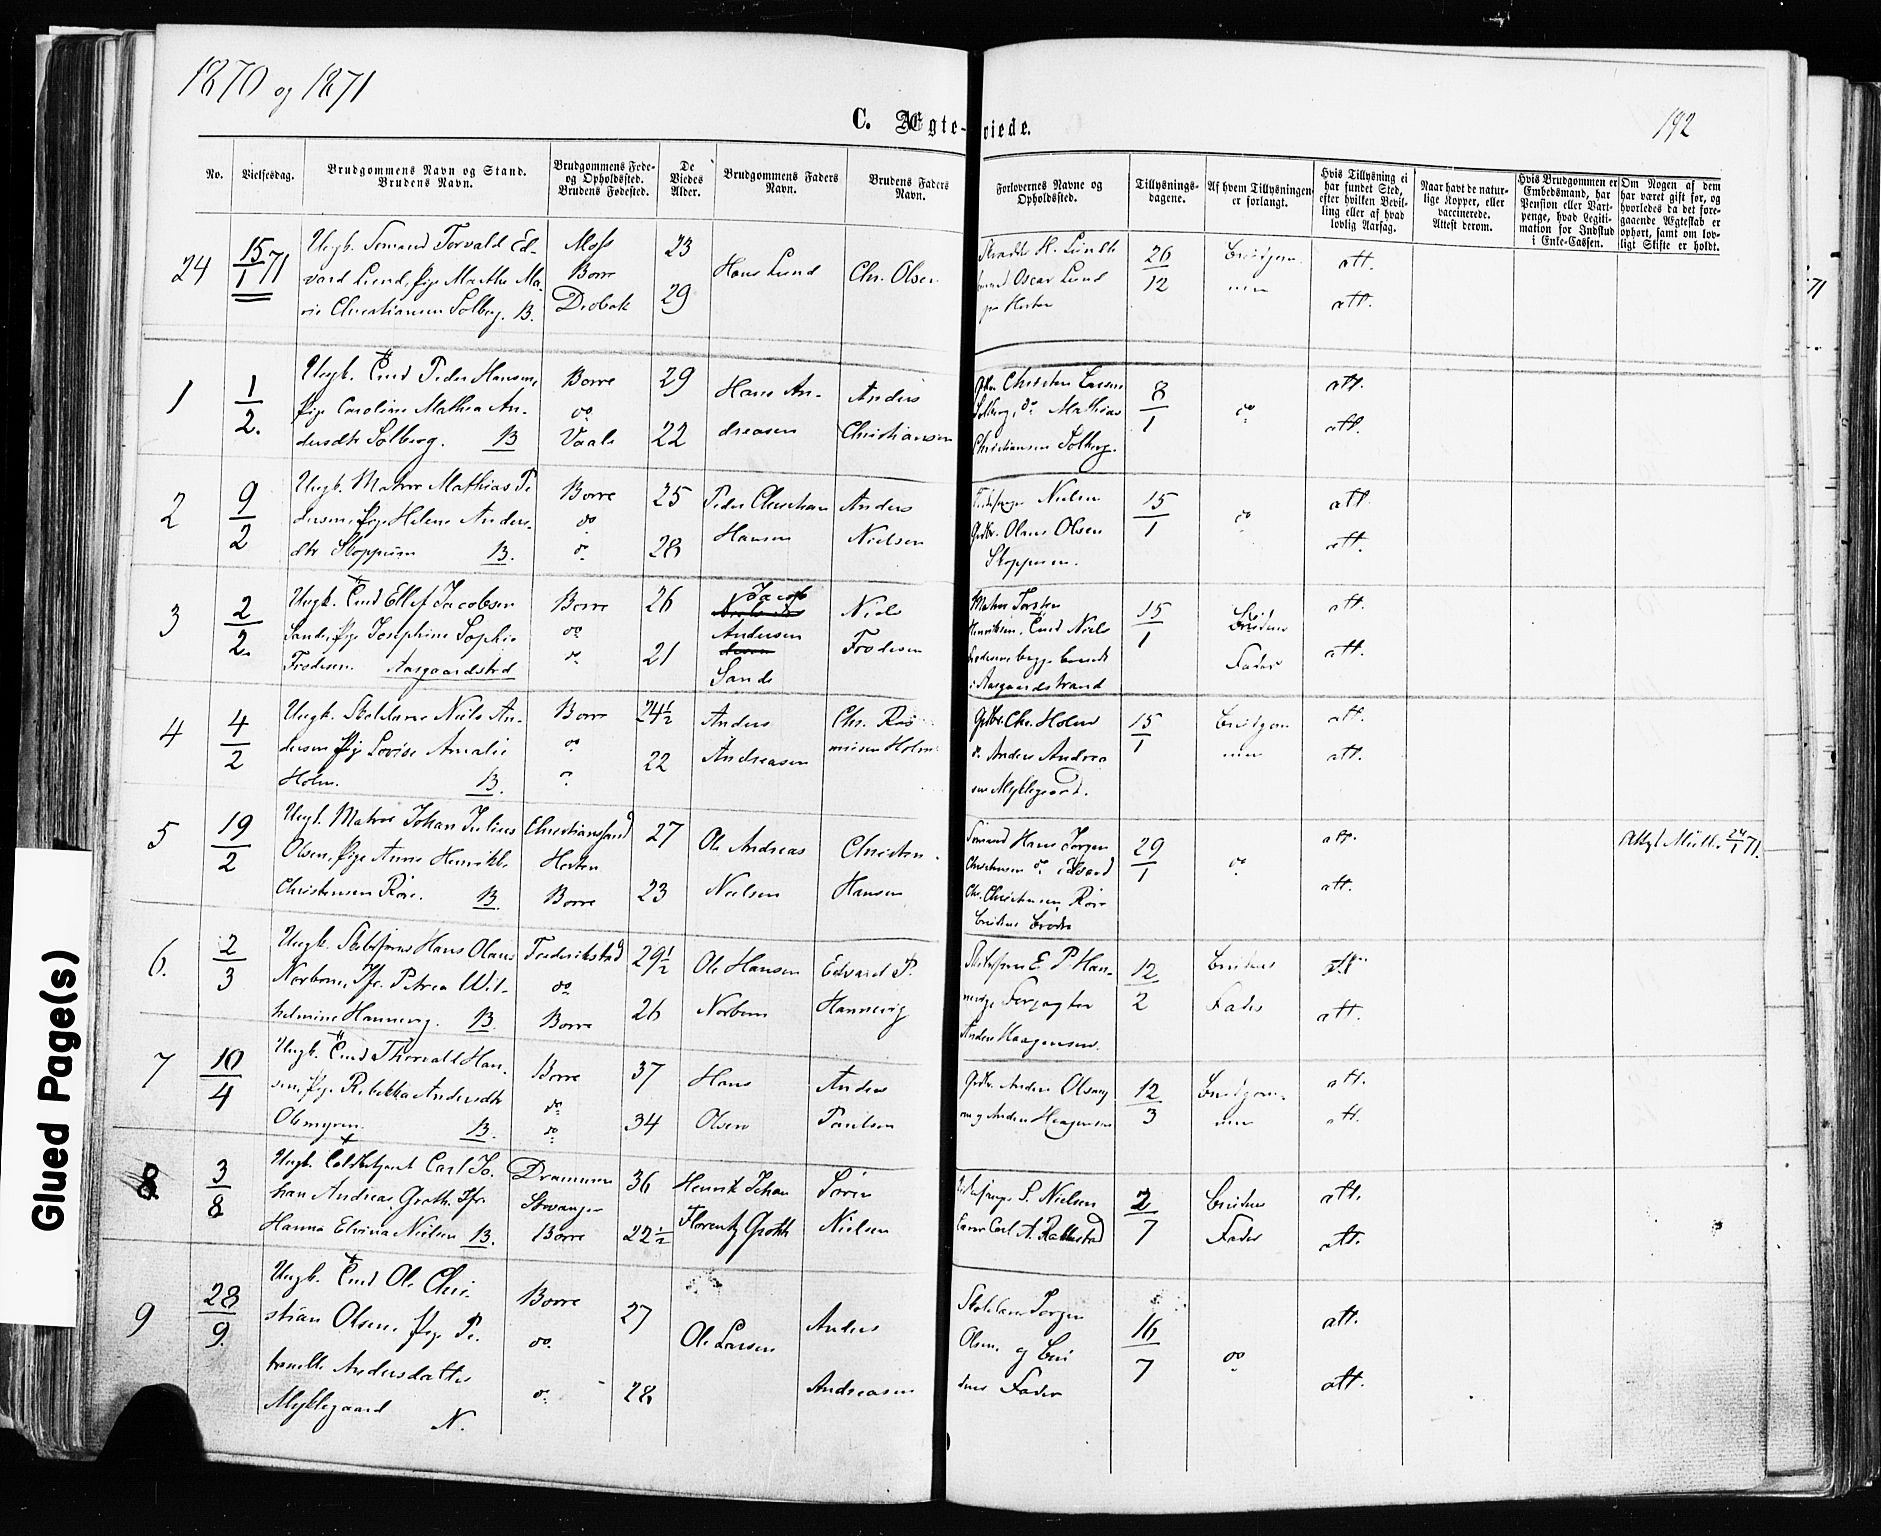 1870 og 1871
C. Ægte-viede.
192
No.
Vielsesdag.
Brudgommens Navn og Stand.
Brudens Navn.
Brudgommens Føde-
og Opholdssted.
Brudens Fødested.
De
Viedes
Alder.
Brudgommens Faders
Navn.
Brudens Faders
Navn.
Forlovernes Navne og
Opholdssted.
Tillysnings-
dagene.
Af hvem Tillysningen
er forlangt.
Hvis Tillysning ei
har fundet Sted,
efter hvilken Bevil-
ling eller af hvad
lovlig Aarsag.
Naar havt de natur-
lige Kopper, eller
vaccinerede.
Attest derom.
Hvis Brudgommen er
Embedsmand, har
Pension eller Vart-
penge, hvad Legiti-
mation for Indskud
i Enke-Cassen.
Om Nogen af dem
har været gift før, og
hvorledes da det fore-
gaaende Ægteskab er
ophørt, samt om lov-
ligt Skifte er holdt.
24
15/1 71
Ungk. Sømand Torvald Ed-
vard Lund, Pige Marthe Ma-
rie Christiansen Solberg. B.
Moss
Borre
Drøbak
23
29
Hans Lund
Chr. Olsen
H. Lund
Oscar Lund
pr Horten
26/12
Brudgom-
men
att.
att.
1
1/2.
Ungk. Peder Hansen,
Pige Caroline Mathea An-
dersdtr Solberg. B
Borre
do
Vaale
29
22
Hans An-
dreasen
Anders
Christiansen
Christen Larsen
Solberg, do Mathias
Christiansen Solberg.
8/1
do
att.
att.
2
9/2
Ungk. Matros Mathias Pe
dersen, Pige Helene Anders-
dtr Skoppum B.
Borre
do
do
25
28
Peder Christian
Hansen
Anders
Nielsen
Nielsen
Gdbr. Olaus Olsen
Skoppum.
15/1
do
att.
att.
3
2/2.
Ungk. Ellef Jacobsen
Sande, Pige Josephine Sophie
Frodesen. Aasgaardstrd
Borre
do
do
26
21
Jacob
Andersen
Sande
Niels
Frodesen
Matros Torsten
Henriksen, Niels
Frodesen begge boende
i Aasgaardstrand
15/1
Brudens
Fader
att.
att.
4
4/2
Ungk. Skolelærer Niels An-
dersen Pige Lovise Amalie
Holm. B.
Borre
do
do
24½
22
Anders
Andreasen
Chr. Ras
mussen Holm
Gdbr. Chr. Holm
do Anders Andrea
sen Myklegaard.
15/1
Brudgom
men
att.
att.
5
19/2
Ungk. Matros Johan Julius
Olsen, Pige Anne Henrikke
Christensen Røre. B.
Christianssand
Horten
Borre
27
23
Ole Andreas
Nielsen
Christen
Hansen
Sømand Hans Jørgen
Christensen do
Chr. Christensen Røre
Brudens Broder
29/1
do
att.
att.
24/1 71.
6.
2/3
Ungk. Hans Olaus
Norbom, Jfr. Petrea Wil-
helmine Hannevig. B.
Frederikstad
do
Borre
29½
26
Ole Hansen
Norbom
Edvard P.
Hannevig
E P Han-
nevig Forpagter
Anders Haagensen.
12/2
Brudens
Fader
att.
att.
7
10/4
Ungk. Thorvald Han-
sen, Pige Rebekka Andersdtr
Olsmyren. B.
Borre
do
do
37
34
Hans
Olsen
Anders
Paulsen
Gdbr. Anders Olsmy
ren og Anders Haagensen
12/3
Brudgom-
men
att.
att.
8
3/8
Ungk. Carl Jo-
han Andreas Groth, Jfr.
Hanna Elvina Nielsen B.
Drammen
Stavanger
Borre
36
22½
Henrik Johan
Florentz Groth
Søren
Nielsen
S. Nielsen
Carl A. Rallestad
2/7
Brudens
Fader
att.
att.
9
28/9.
Ungk. Ole Chri-
stian Olsen, Pige Pe-
tronelle Andersdatter
Myklegaard N.
Borre
do.
do
27
28
Ole Larsen
Anders
Andreasen
Skolelærer Jørgen
Olsen og Bru
dens Fader
16/7
do
att.
att.
Glued Page(s)